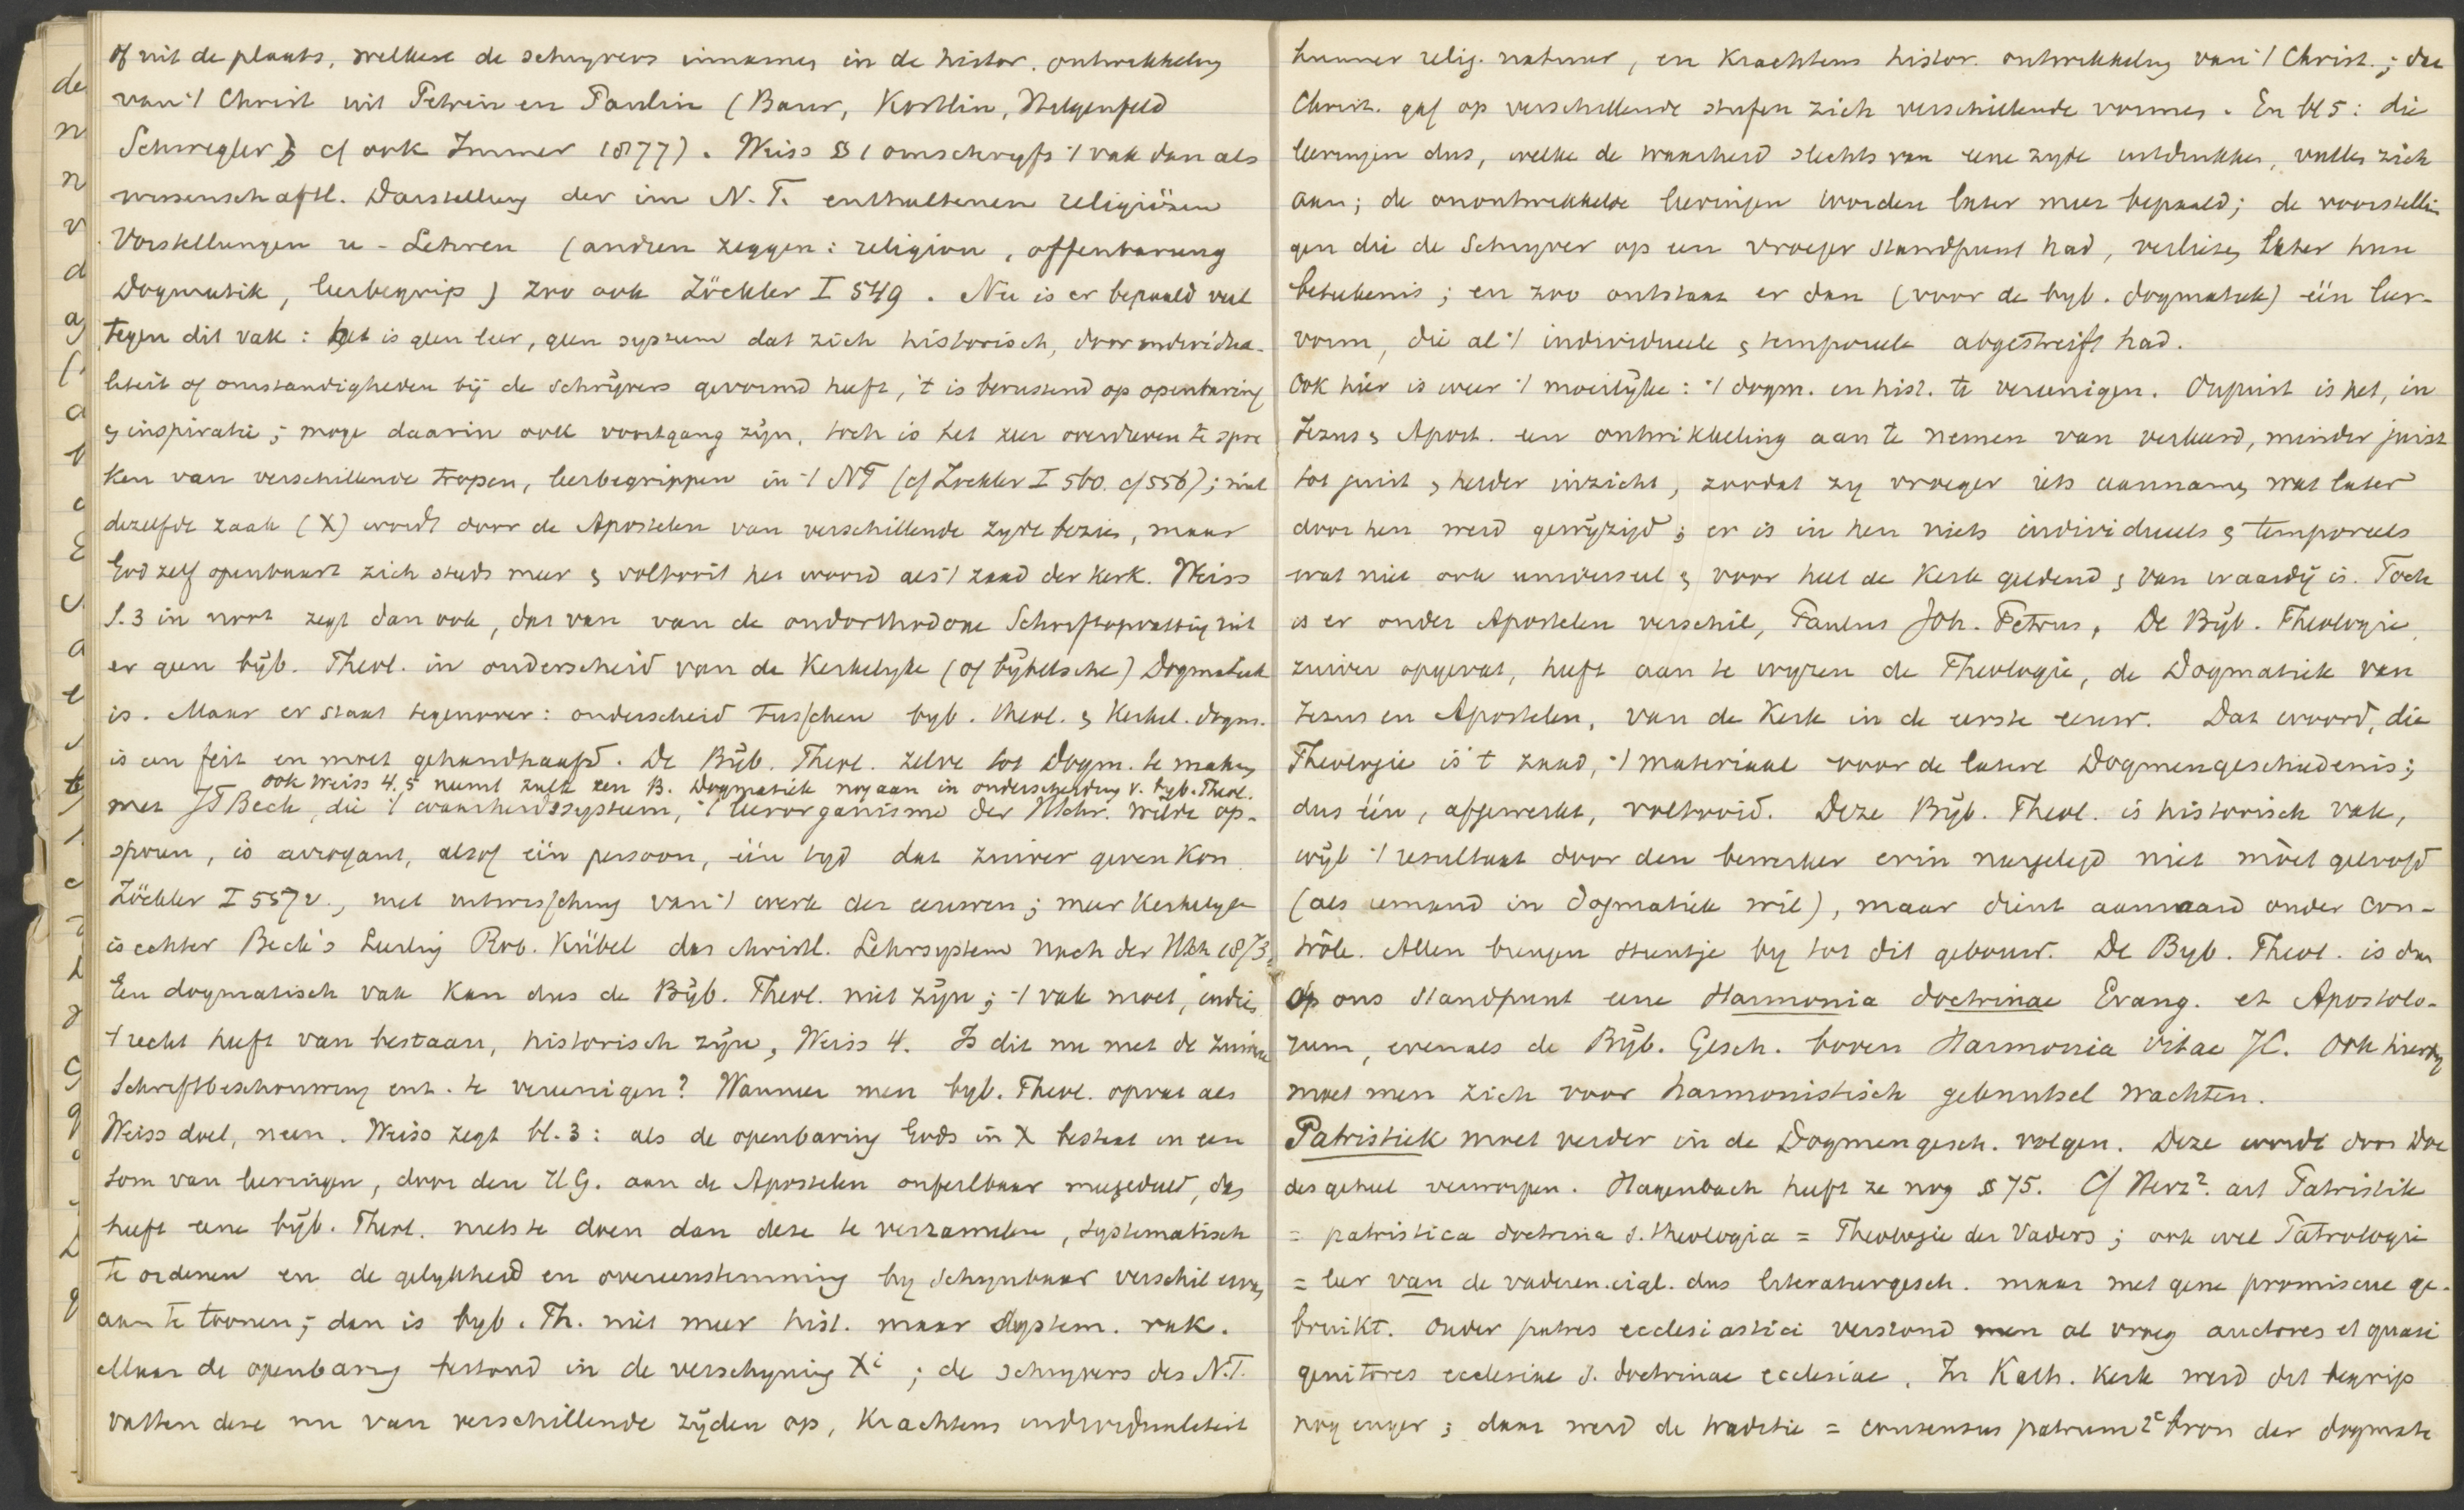 of uit de plaats, welken de schrijvers innamen in de histor. ontwikkeling
van 't Christ uit Petrin en Paulin (Baur, Kostlin, Hilgenfeld
Schwegler) cf ook Immer 1877). Weiss § 1 omschryft 't vak dan als
wissenschaftl. Darstellung der im N.T. enthaltenen religiösen
Vorstellungen u- Lehren (andren zeggen: religion, offenbarung
Dogmatik, leerbegrip) zoo ook Zöckler I 549. Nu is er bepaald veel
tegen dit vak: het is geen leer, geen systeem dat zich historisch, door individua-
liteit of omstandigheden bij de schrijvers gevormd heeft, 't is berustend op openbaring
en inspiratie; moge daarin ook voortgang zijn, toch is het zeer overdreven te spre
ken van verschillende tropen, leerbegrippen in 't NT (cf Zockler I 560. cf 556); niet
dezelfde zaak (X) wordt door de Apostelen van verschillende zyde bezien, maar
God zelf openbaart zich steds meer en voltooit het woord als 't zaad der kerk. Weiss
S. 3 in noot zegt dan ook, dat van van de oudorthodoxe Schriftopvatting uit
er geen bijb. Theol. in onderscheid van de Kerkelyke (of bijbelsche) Dogmatiek
is. Maar er staat tegenover: onderscheid tusschen byb. theol. en Kerkel. dogm.
is een feit en moet gehandhaafd. De Bijb. Theol. zelve tot Dogm. te maken
ook Weiss 4.5 neemt zulk een B. Dogmatiek nog aan in onderscheiding v. byb. Theol.
met JT Beck, die 't waarheidssysteem, 't leerorganisme der HSchr. wilde op-
sporen, is arrogant, alsof één persoon, één tyd dat zuiver geven kon
Zöckler I 557 v., met uitwissching van 't werk der eeuwen; meer Kerkelyk
is echter Beck's Leerling Rob. Kübel das christl. Lehrsystem nach der HSch 1873.
Een dogmatisch vak kan dus de Bijb. Theol. niet zijn; 't vak moet, indien
't recht heeft van bestaan, historisch zijn, Weiss 4. Is dit nu met de zuivere
Schriftbeschouwing enz. te vereenigen? Wanneer men byb. Theol. opvat als
Weiss doet, neen. Weiss zegt bl. 3: als de openbaring Gods in X bestaat in een
som van leeringen, door den H.G. aan de Apostelen onfeilbaar meegedeeld, dan
heeft eene bijb. Theol. niets te doen dan deze te verzamelen, systematisch
te ordenen en de gelykheid en overeenstemming by schynbaar verschil even
aan te toonen; dan is byb. Th. niet meer hist. maar System. vak.
Maar de openbaring bestond in de verschyning Xi; de schryvers des N.T.
vatten deze nu van verschillende zijden op, Krachtens individualiteit
hunner relig. natuur, en Krachtens histor. ontwikkeling van 't Christ.; dat
Christ. gaf op verschillende stufen zich verschillende vormen. En bl 5: die
leeringen dus, welke de waarheid slechts van eene zyde uitdrukken, vullen zich
aan; de onontwikkelde leeringen worden later meer bepaald; de voorstellin
gen die de Schryver op een vroeger standpunt had, verliezen later hun
beteekenis; en zoo ontstaat er dan (voor de byb. dogmatiek) één leer-
vorm, die al 't individueele en temporeele abgestreift had.
Ook hier is weer 't moeilijke: 't dogm. en hist. te vereenigen. Onjuist is het, in
Jezus en Apost. een ontwikkeling aan te nemen van verkeerd, minder juist
tot juist en helder inzicht, zoodat zy vroeger iets aannamen wat later
door hen werd gewijzigd; er is in hen niets individueels en temporeels
wat niet ook universeel en voor heel de Kerk geldend en van waardij is. Toch
is er onder Apostelen verschil, Paulus Joh. Petrus. De Bijb. Theologie,
zuiver opgevat, heeft aan te wyzen de Theologie, de Dogmatiek van
Jezus en Apostelen, van de Kerk in de eerste eeuw. Dat woord, die
Theologie is 't zaad, 't materiaal voor de latere Dogmengeschiedenis;
dus één, afgewerkt, voltooid. Deze Bijb. Theol. is historisch vak,
wijl 't resultaat door den bewerker erin neergelegd niet móet geloofd
(als iemand in dogmatiek wil), maar dient aanvaard onder con-
trôle. Allen brengen steentje by tot dit gebouw. De Byb. Theol. is dus
Op ons standpunt eene Harmonia doctrinae Evang. et Apostolo-
rum, evenals de Bijb. Gesch. boven Harmonia vitae JC. Ook hierby
moet men zich voor harmonistisch geknutsel wachten.
Patristiek moet verder in de Dogmengesch. volgen. Deze wordt door Doe
des geheel verworpen. Hagenbach heeft ze nog § 75. Cf Herz². art Patristik
= patristica doctrina s. theologia = Theologie der Vaders; ook wel Patrologie
= leer van de vaderen. eigl. dus literaturgesch. maar met gene promiscue ge-
bruikt. Onder patres ecclesiastici verstond men al vroeg auctores et quasi
genitores ecclesiae s. doctrinae ecclesiae. In Kath. Kerk werd dit begrip
nog enger; daar werd de traditie = consensus patrum 2e bron der dogmata